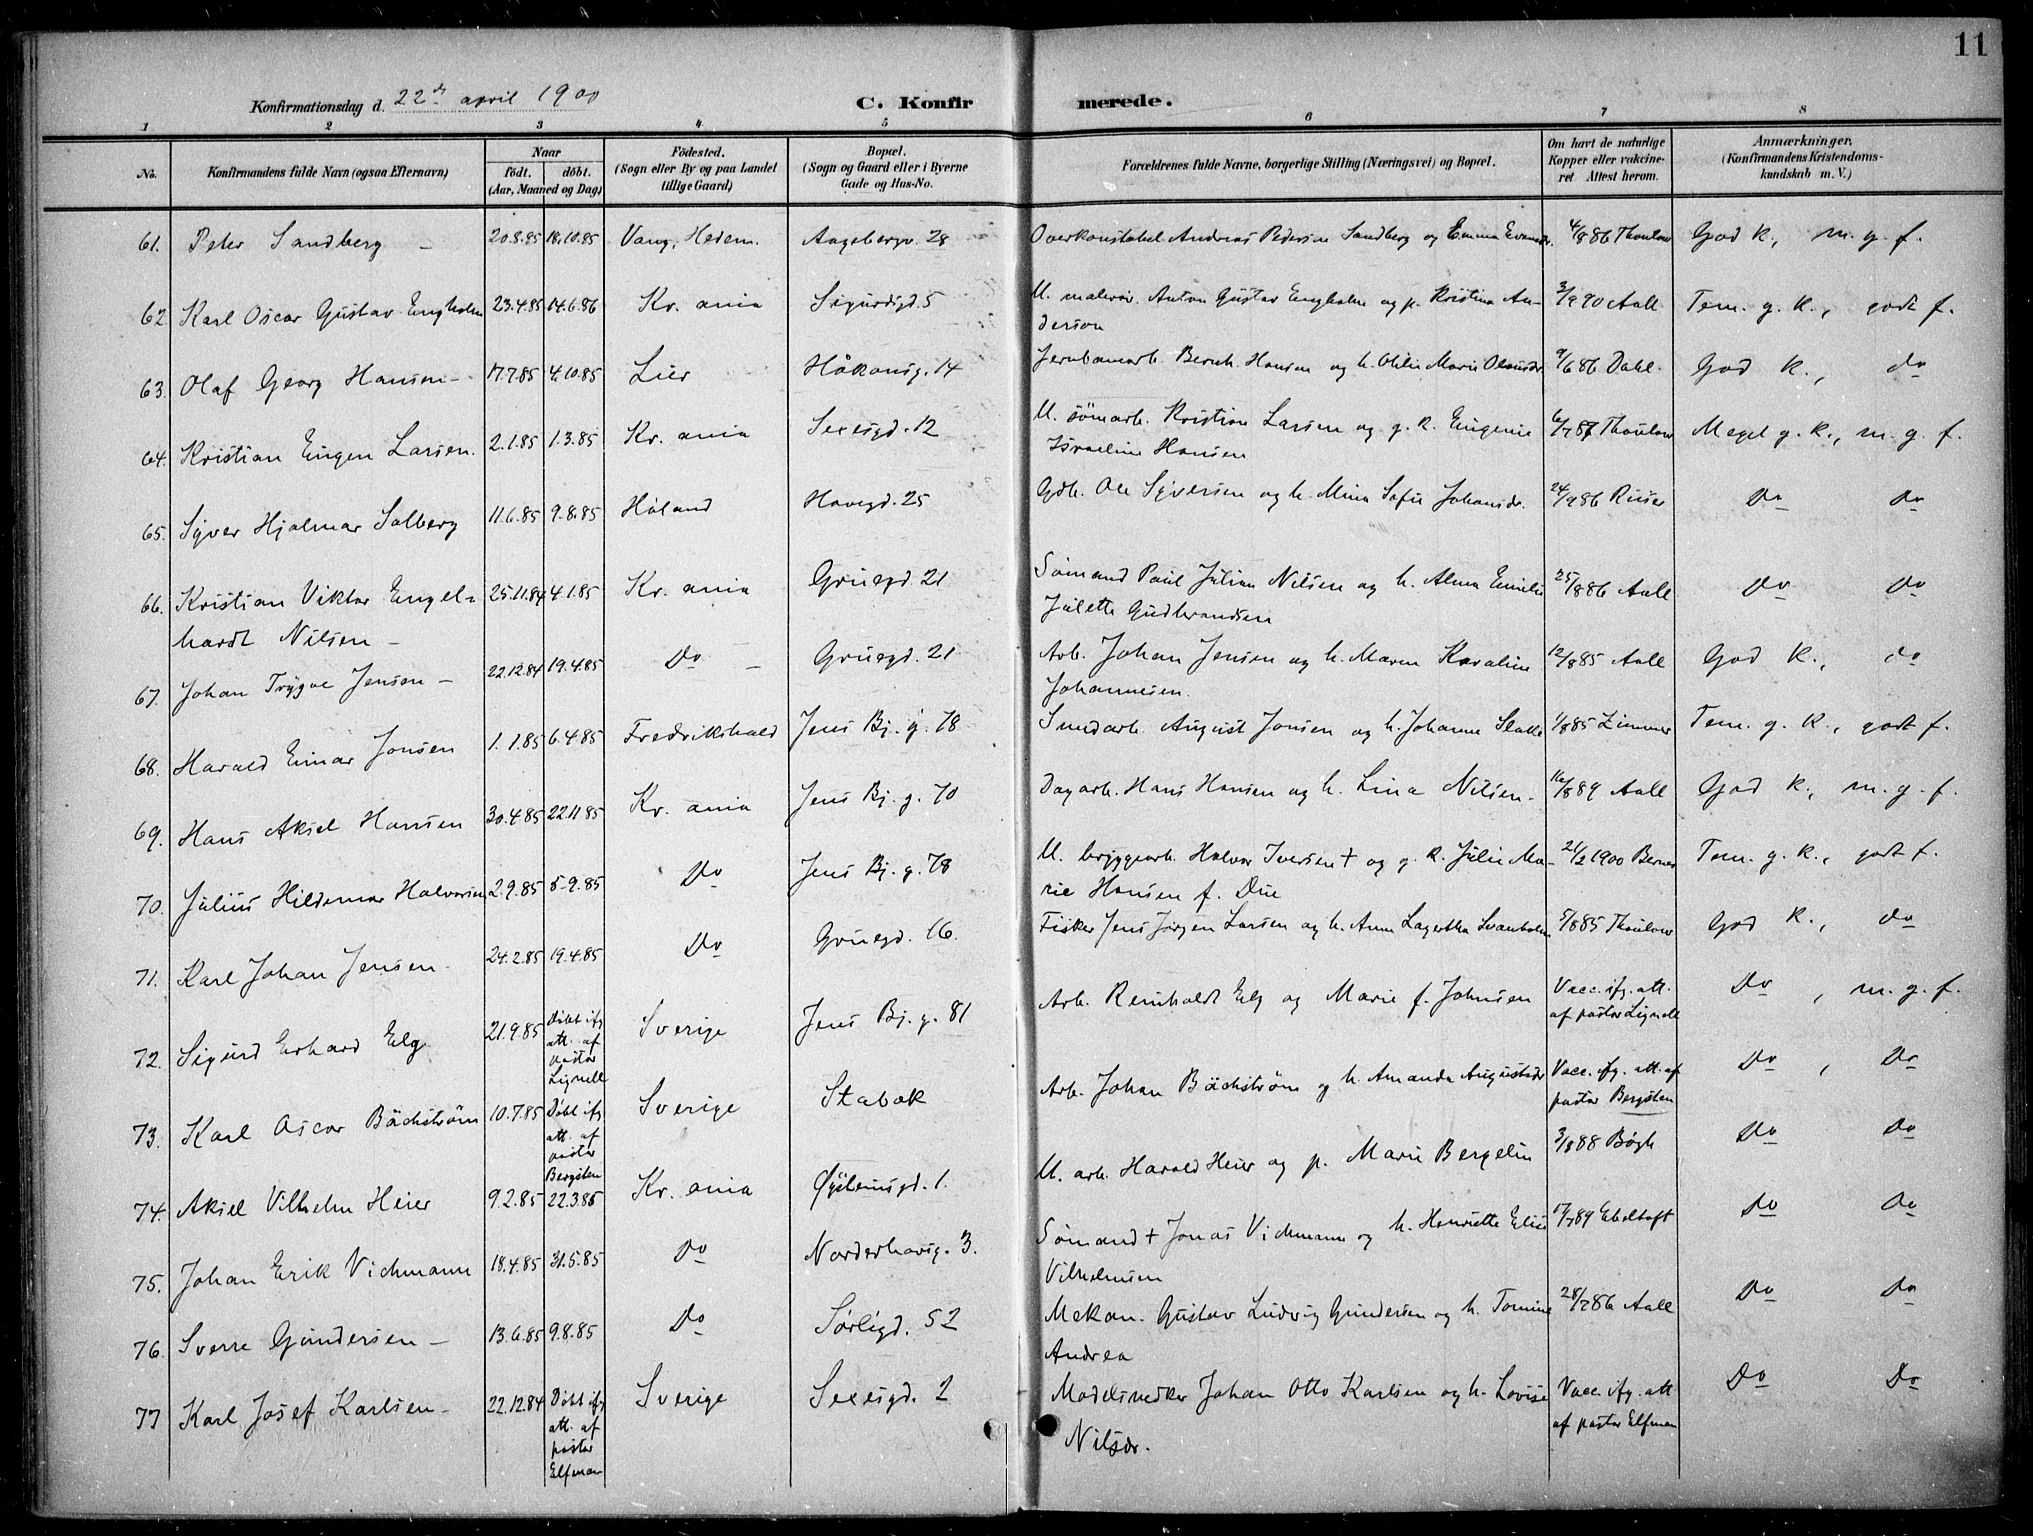 11
Konfirmationsdag d. 22de april 1900 C. Konfirmerede.
1 2 3 4 5 6 7 8
No. Konfirmandens fulde Navn (ogsaa Efternavn) Naar født. døbt. (Aar, Maaned og Dag) Fødested. (Sogn eller By og paa Landet tillige Gaard) Bopæl. (Sogn og Gaard eller i Byerne Gade og Hus-No. Forældrenes fulde Navne, borgerlige Stilling (Næringsvei) og Bopæl. Om havt de naturlige Kopper eller vakcineret Attest herom. Anmærkninger, (Konfirmandens Kristendomskundskab m. V.)
61. Peter Sandberg – 20.8.85 18.10.85 Vang, Hedem. Aagebergv. 28 Overkonstabel Andreas Pedersen Sandberg og Emma 4/8 86 Thoulow God k., m. g. f.
62. Karl Oscar Gustav Engholm 23.4.85 14.6.86 Kr. ania Sigurdsgd. 5 U. malersv. Anton Gustav Engholm og p. Kristina An-
derson 3/9 90 Aall. Tem. g. k., godt f.
63. Olaf Georg Hansen – 17.7.85 4.10.85 Lier Håkonsg. 14 Jernbanearb. Bernh. Hansen og h. Otilie Marie 9/6 86 Dahl. God k., do
64. Kristian Eugen Larsen. 2.1.85 1.3.85 Kr. ania Sexesgd. 12 U. sömarb. Kristian Larsen og g. k. Eugenie
Israeline Hansen 6/7 87 Thoulow Meget g. k., m. g. f.
65. Syver Hjalmar Solberg 11.6.85 9.8.85 Høland Havegd. 25 Gdb. Ole Syversen og h. Mina Sofie Johansdr. 24/9 86 Riiser Do Do
66. Kristian Viktor Engel-
hardt Nilsen – 25.11.84 4.1.85 Kr. ania Gruegd. 21 Sømand Paul Julian Nilsen og h. Alma Emilie
Julette Gudbrandsen 25/8 86 Aall Do Do
67. Johan Trygve Jensen – 22.12.84 19.4.85 Do – Gruegd. 21 Arb. Johan Jensen og h. Maren Karoline
Johannesen. 12/8 85 Aall God k., do
68. Harald Einar Jonsen 1.1.85 6.4.85 Fredrikshald Jens Bj. g. 78 Smedarb. August Jonsen og h. Johanne 1/8 85 Zimmer Tem. g. k., godt f.
69. Hans Aksel Hansen 30.4.85 22.11.85 Kr. ania Jens Bj. g. 70 Dagarb. Hans Hansen og h. Lina Nilsen – 16/8 89 Aall God k., m. g. f.
70. Julius Hildemar Halvorsen 2.9.85 5.9.85 Do Jens Bj. g. 78 U. bryggearb. Halvor Iversen + og g. k. Julie Ma-
rie Hansen f. Due 21/2 1900 Berner Tem. g. k., godt f.
71. Karl Johan Jensen – 24.2.85 19.4.85 Do Gruegd. 16. Fisker Jens Jørgen Larsen og h. Anna Lagertha Svanholm 5/8 85 Thoulow God k., do
72. Sigurd Erhard Elg 21.9.85 Døbt ifg
att. af
pastor
Lignell Sverige Jens Bj. g. 81 Arb. Reinholdt Elg og Marie f. Johnsen Vacc. ifg. att.
af pastor Lignell Do , m. g. f.
73. Karl Oscar Bächström 10.7.85 Døbt ifg
att. af
pastor
Bergsten Sverige Stabæk Arb. Johan Bächström og h. Amanda Augustadr Vacc. ifg. att. af
pastor Bergsten Do , Do
74. Aksel Vilhelm Heier 9.2.85 22.3.85 Kr. ania Øysteinsgd. 1. U. arb. Harald Heier og p. Marie Bergelin 3/8 88 Bøgh Do Do
75. Johan Erik Vichmann 18.4.85 31.5.85 Do Norderhovsg. 3. Sømand + Jonas Vichmann og h. Henriette Elise
Vilhelmsen 17/7 89 Ebeltoft Do Do
76. Sverre Gundersen – 13.6.85 9.8.85 Do Sørligd. 52 Mekan. Gustav Ludvig Gundersen og h. Tomine
Andrea 28/7 86 Aall Do Do
77 Karl Josef Karlsen – 22.12.84 Døbt ifg
att. af
pastor
Elfman Sverige Sexesgd. 2 Modelsnedker Johan Otto Karlsen og h. Lovise
Nilsdr. Vacc. ifg. att
af pastor Elfman Do Do